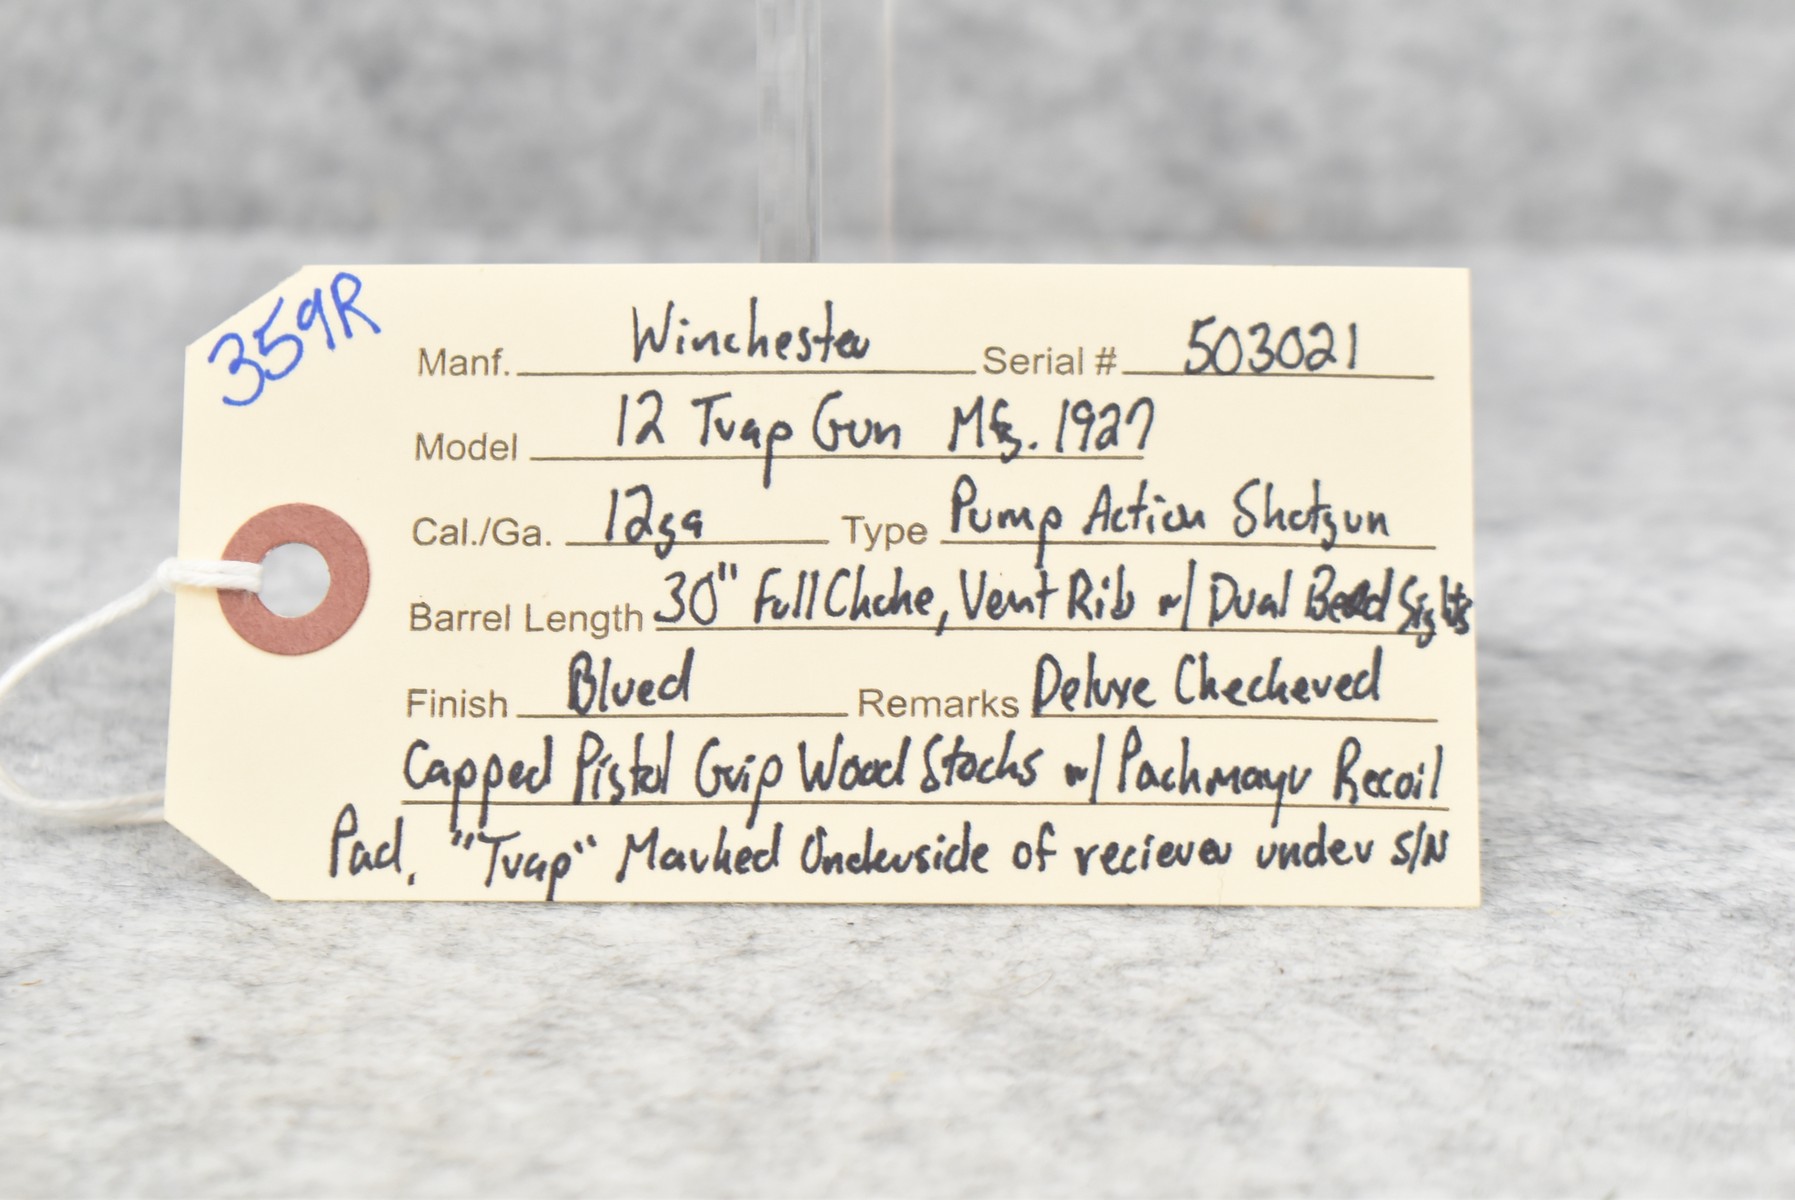 359R
Manf. Winchester Serial # 503021
Model 12 Trap Gun Mfg. 1927
Cal./Ga. 12ga Type Pump Action Shotgun
Barrel Length 30" Full Choke, Vent Rib w/ Dual Bead Sights
Finish Blued Remarks Deluxe Checkered
Capped Pistol Grip Wood Stocks w/ Pachmayr Recoil
Pad. "Trap" Marked Underside of reciever under S/N